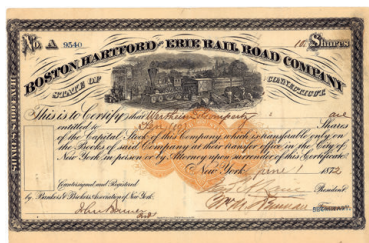 No. A 9540 10 Shares
BOSTON, HARTFORD AND ERIE RAIL ROAD COMPANY
STATE OF CONNECTICUT.
This is to Certify that & Company are
entitled to Ten (10) Shares
of the Capital Stock of this Company which is transferable only on
the Books of said Company at their transfer office in the City of
New York in person or by Attorney upon surrender of this Certificate.
New York, June 1 1872
Countersigned and Registered
by Bankers & Brokers Association of New York.
President